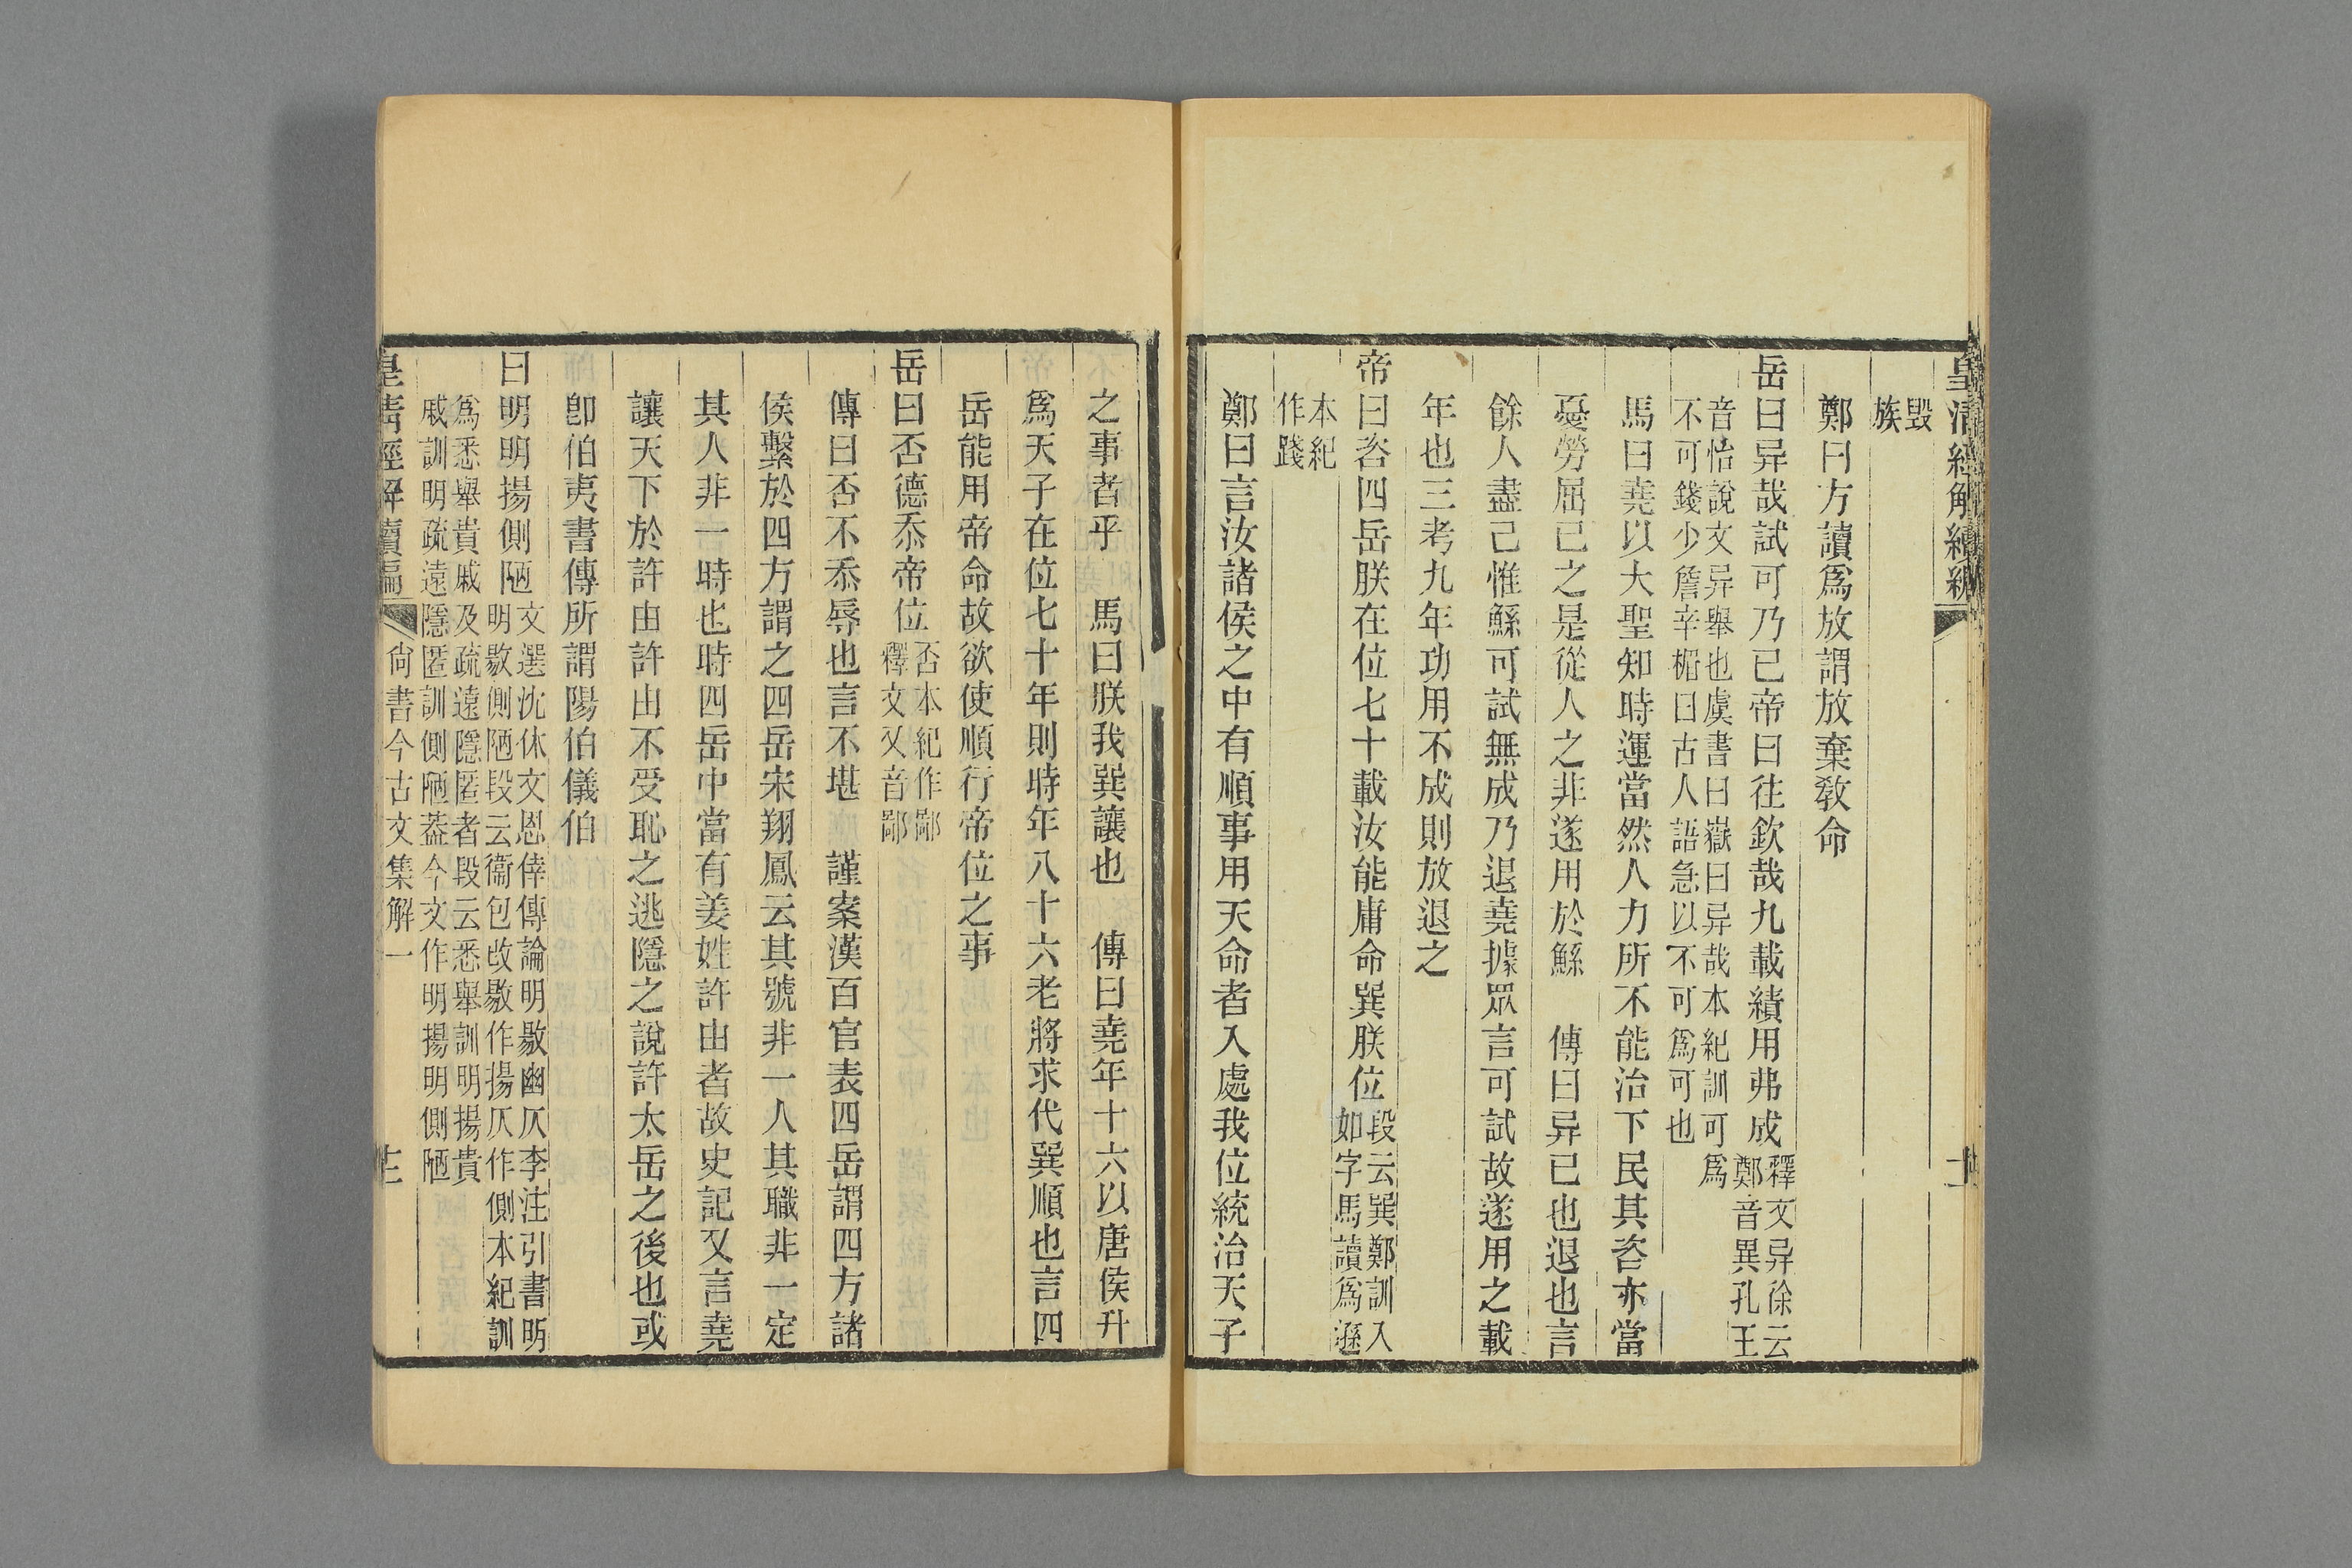 皇清經解續編
十
毀
族
鄭曰方讀爲放謂放棄敎命
岳曰异哉試可乃已帝曰往欽哉九載績用弗成
釋文异徐云
鄭音異孔王
音怡說文异舉也虞書曰嶽曰异哉本紀訓可爲
不可錢少詹辛楣曰古人語急以不可爲可也
馬曰堯以大聖知時運當然人力所不能治下民其咨亦當
憂勞屈己之是從人之非遂用於鯀　傳曰异已也退也言
餘人盡己惟鯀可試無成乃退堯據眾言可試故遂用之載
年也三考九年功用不成則放退之
帝曰咨四岳朕在位七十載汝能庸命巽朕位
段云巽鄭訓入
如字馬讀爲遜
本紀
作踐
鄭曰言汝諸侯之中有順事用天命者入處我位統治天子
之事者乎　馬曰朕我巽讓也　傳曰堯年十六以唐侯升
爲天子在位七十年則時年八十六老將求代巽順也言四
岳能用帝命故欲使順行帝位之事
岳曰否德忝帝位
否本紀作鄙
釋文又音鄙
傳曰否不忝辱也言不堪　謹案漢百官表四岳謂四方諸
侯繫於四方謂之四岳宋翔鳳云其號非一人其職非一定
其人非一時也時四岳中當有姜姓許由者故史記又言堯
讓天下於許由許由不受恥之逃隱之說許太岳之後也或
卽伯夷書傳所謂陽伯儀伯
曰明明揚側陋
文選沈休文恩倖傳論明敭幽仄李注引書明
明敭側陋段云衞包改敭作揚仄作側本紀訓
爲悉舉貴戚及疏遠隱匿者段云悉舉訓明揚貴
戚訓明疏遠隱匿訓側陋葢今文作明揚明側陋
皇淸經解續編
尙書今古文集解一